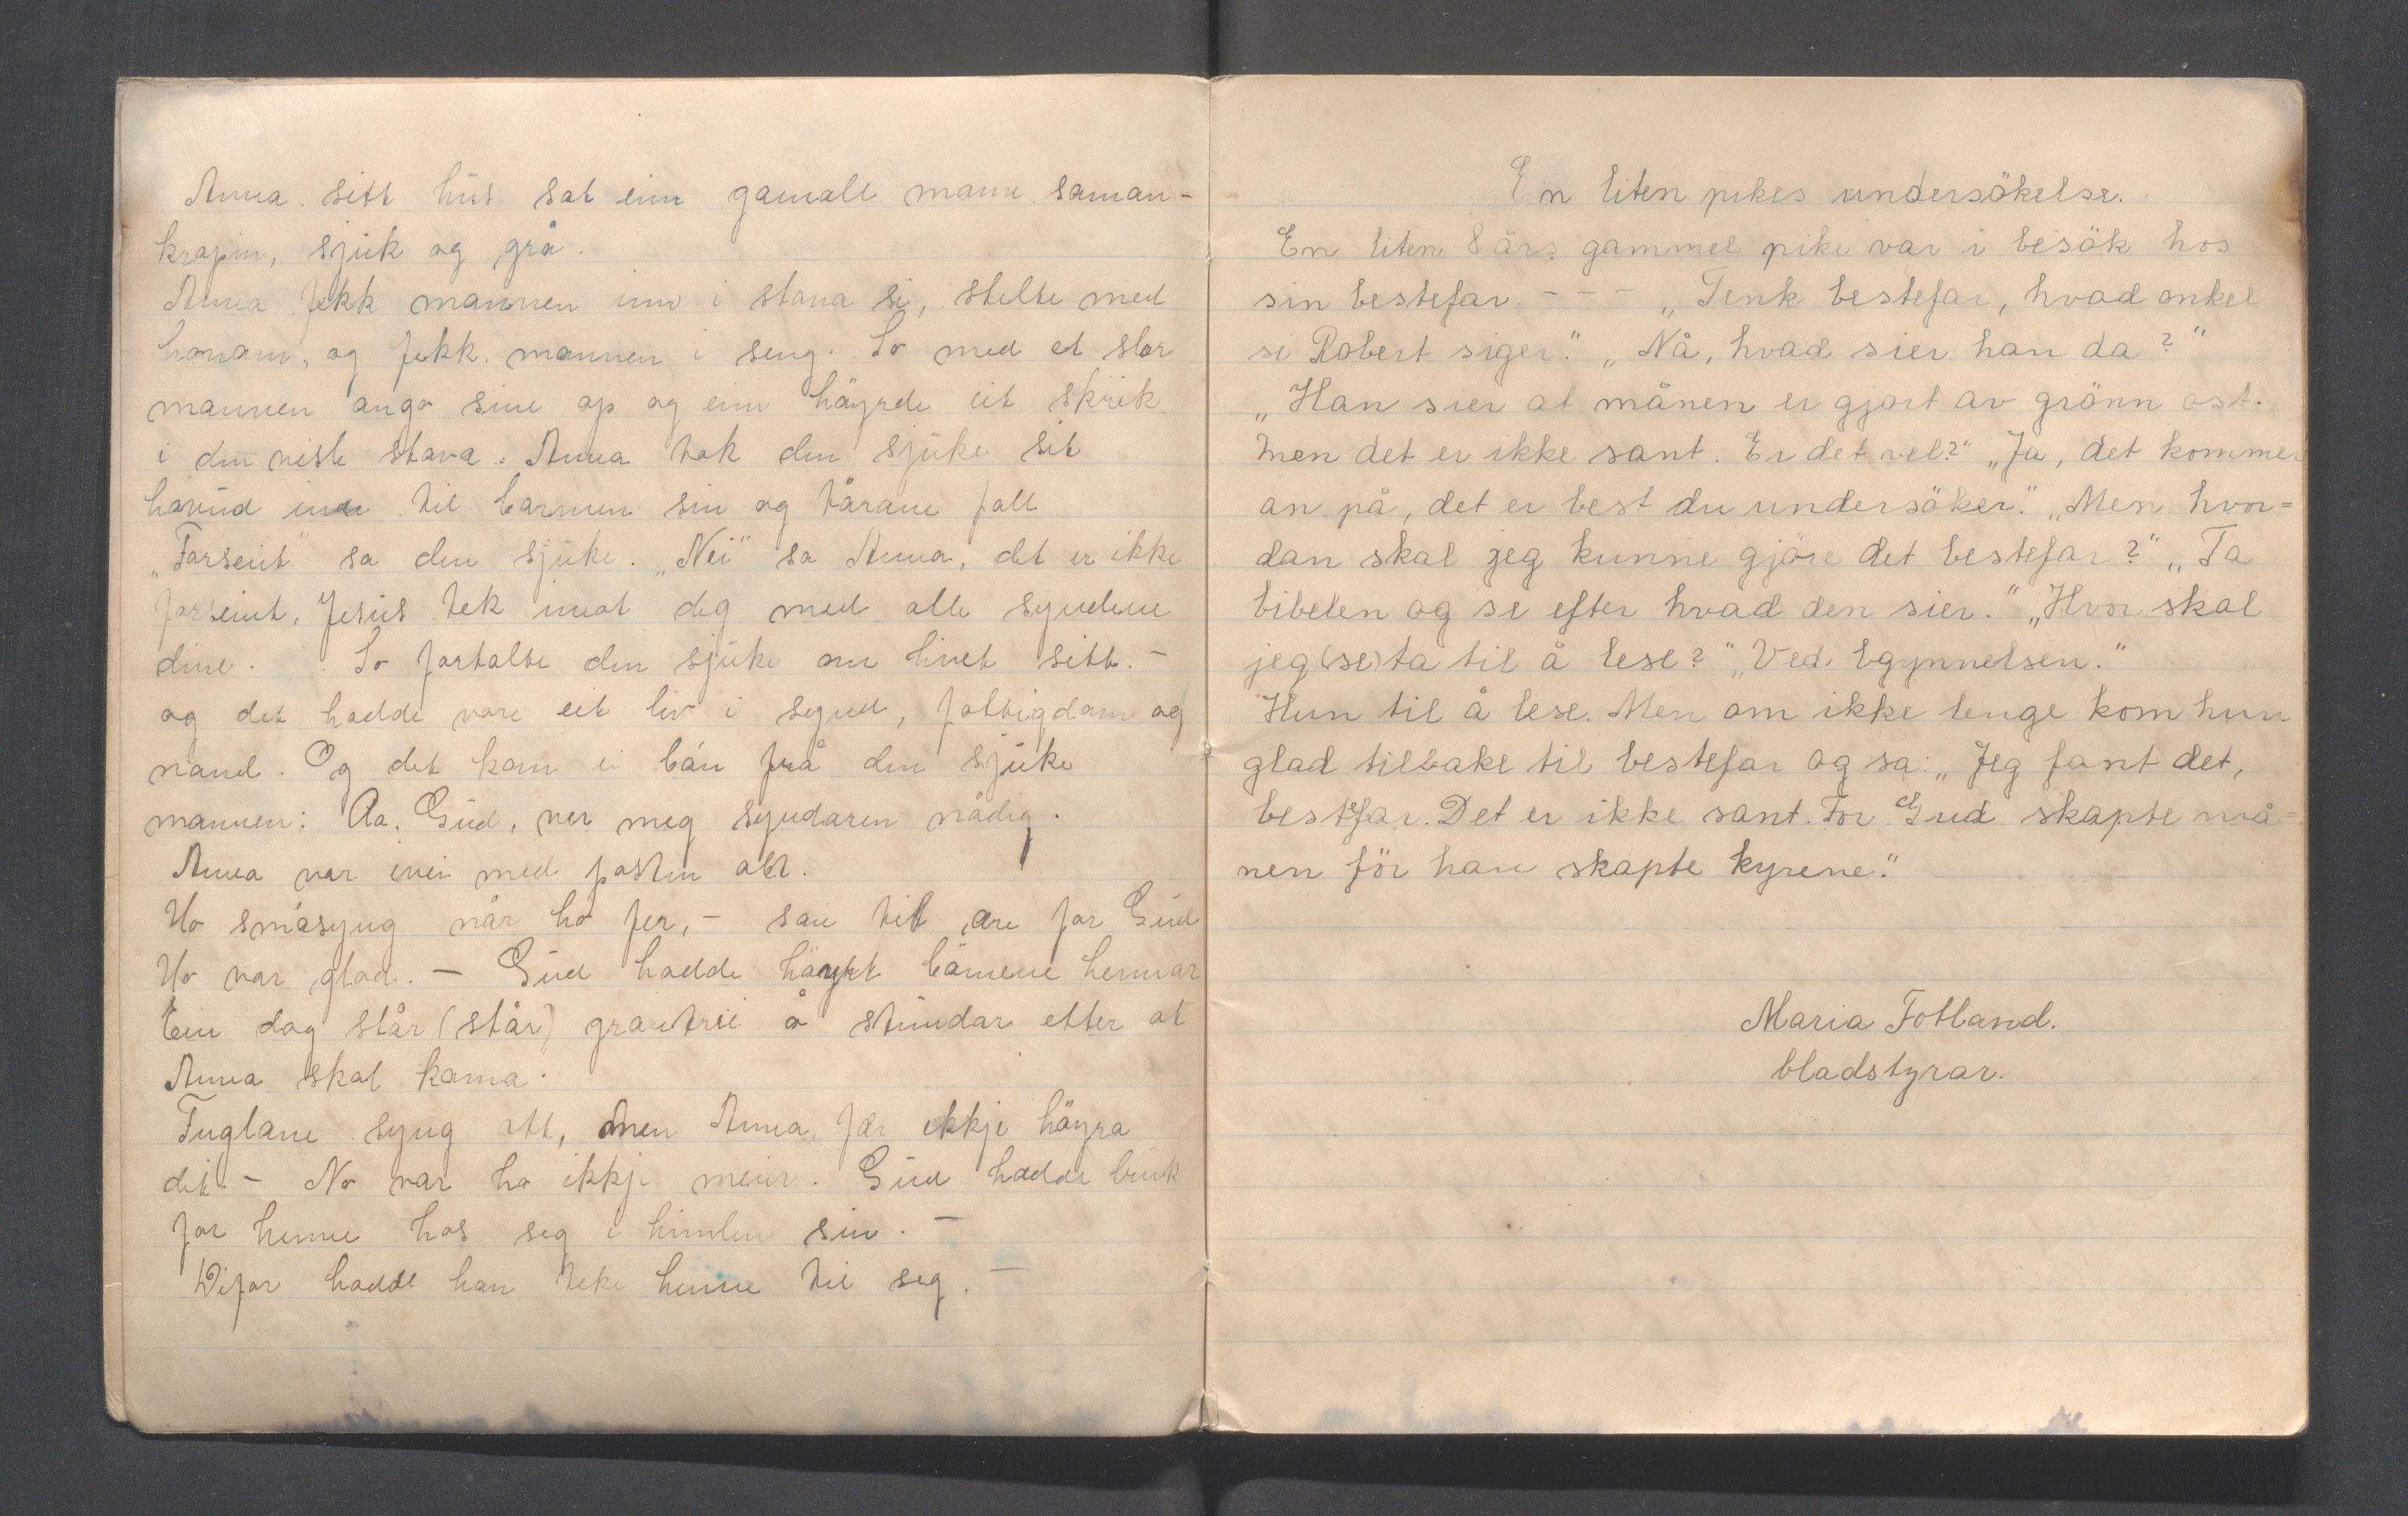 Anna sitt hus sat ein gamall mann saman-
krapin, sjuk og grå.
Anna fekk mannen inn i stova si, stelte med
honom, og fekk mannen i seng. So med et slær
mannen augo sine op og ein höyrde eit skrik
i den visle stova. Anna tok den sjuke sit
hovud inn til barmen sin og tårane fall
"Forseint" sa den sjuke. "Nei" sa Anna, det er ikke
forseint, Jesus tek imot deg med alle syndene
dine. So fortalte den sjuke om livet sitt. -
og det hadde vore eit liv i synd, fattigdom og
naud. Og det kom ei bön frå den sjuke
mannen: Aa, Gud, ver meg syndaren nådig.
Anna var inni med posten att.
Ho småsyng når ho fer, - san til ære for Gud
Ho var glad. - Gud hadde höyrt bönene hennar
Ein dag står (står) grantrei å stundar etter at
Anna skal koma.
Fuglane syng att, men Anna fær ikkje höyra
dei. - No var ho ikkje meir. Gud hadde bruk
for henne hos seg i himlen sin. -
Difor hadde han teke henne til seg. -
En liten pikes undersökelse.
En liten 8 års gammel pike var i besök hos
sin bestefar. - - - „Tenk bestefar, hvad onkel
se Robert siger." „Nå, hvad sier han da?"
„Han sier at månen er gjort av grönn ost.
Men det er ikke sant. Er det vel?" „Ja, det kommer
an på, det er best du undersöker." „Men hvor=
dan skal jeg kunne gjöre det bestefar?" „Ta
bibelen og se efter hvad den sier." „Hvor skal
jeg (se) ta til å lese?" „Ved bgynnelsen."
Hun til å lese. Men om ikke lenge kom hun
glad tilbake til bestefar og sa: „Jeg fant det,
bestefar. Det er ikke sant. For Gud skapte må=
nen för han skapte kyrene."
Maria Fotland.
bladstyrar.